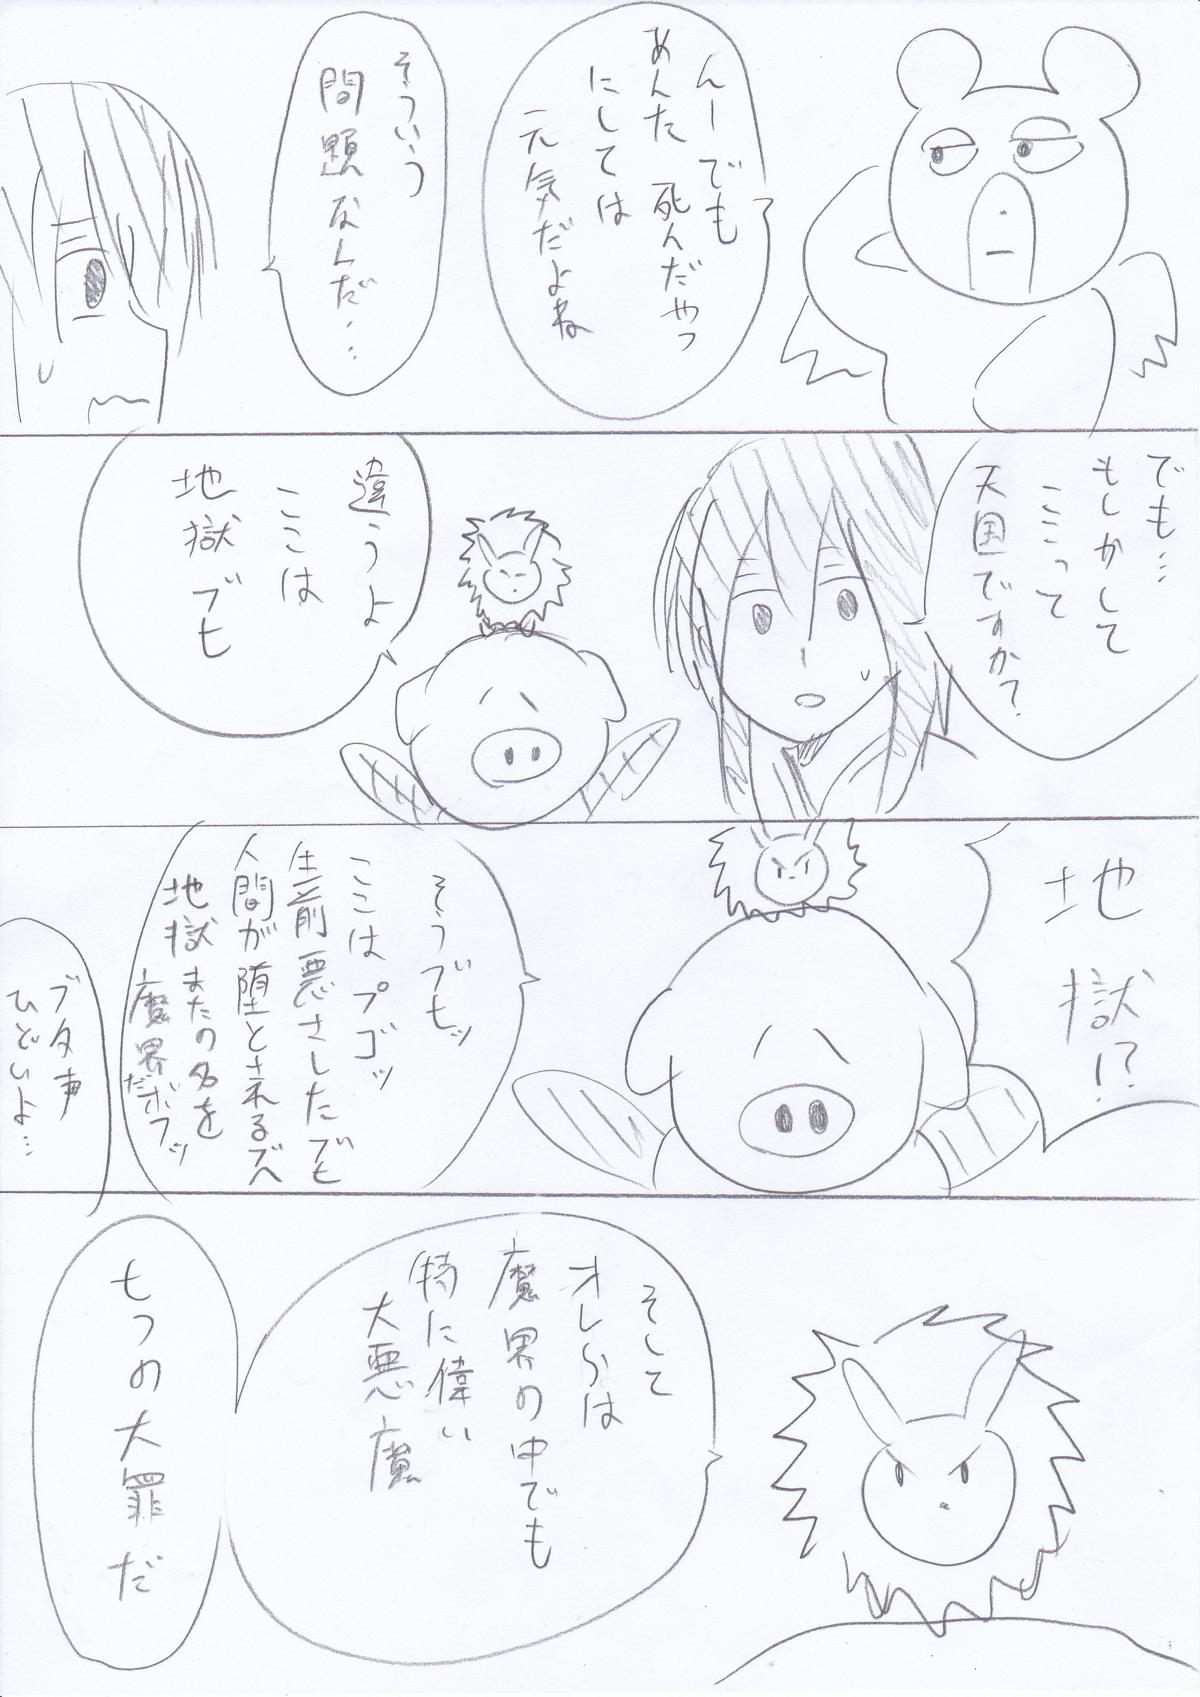 んーでも
あんた死んだやつ
にしては
元気だよね
そういう
問題なんだ…
でも…
もしかして
ここって
天国ですか?
違うよ
ここは
地獄ブモ
地獄!?
そうブモッ
ここはプゴッ
生前悪さしたブモ
人間が堕とされるブヘ
地獄またの名を
魔界だボフッ
ブタ声
ひどいよ…
そして
オレらは
魔界の中でも
特に偉い
大悪魔
七つの大罪だ